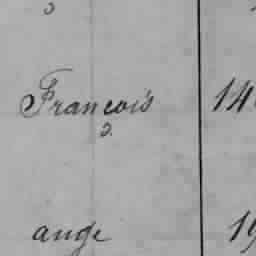 François 14
ange 19